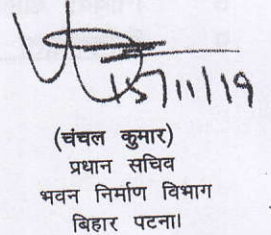 15/11/19
(चंचल कुमार)
प्रधान सचिव
भवन निर्माण विभाग
बिहार पटना।